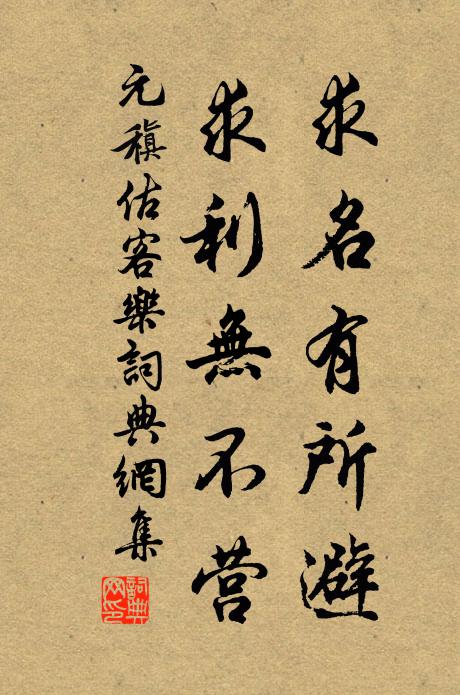 求名有所避
求利無不营
元稹估客樂詞典網集
詞典網印